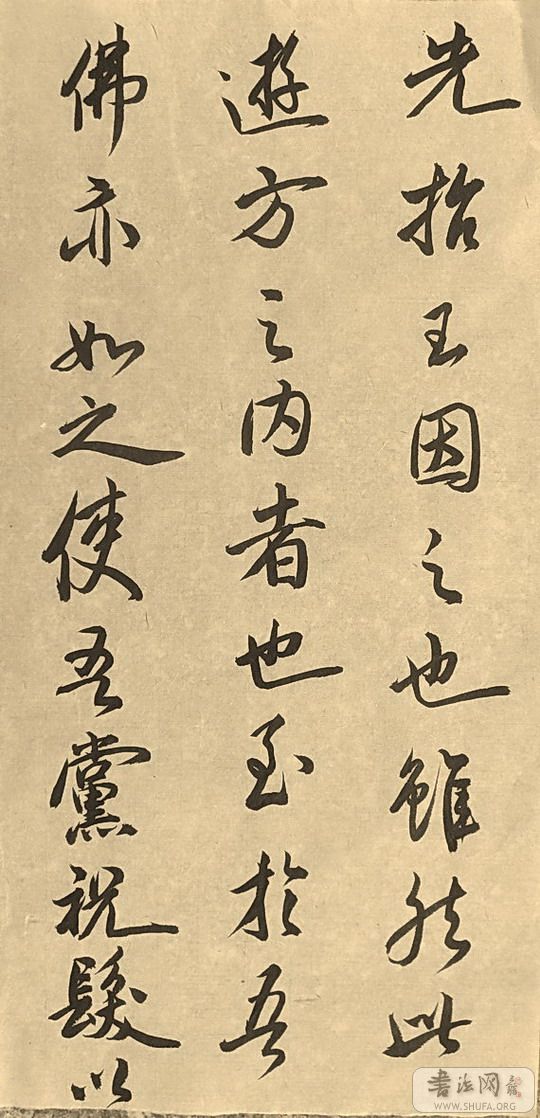 先哲王因之也雖然此
遊方之内者也至於吾
佛亦如之使吾黨祝髮以
書法网
WWW.SHUFA.ORG